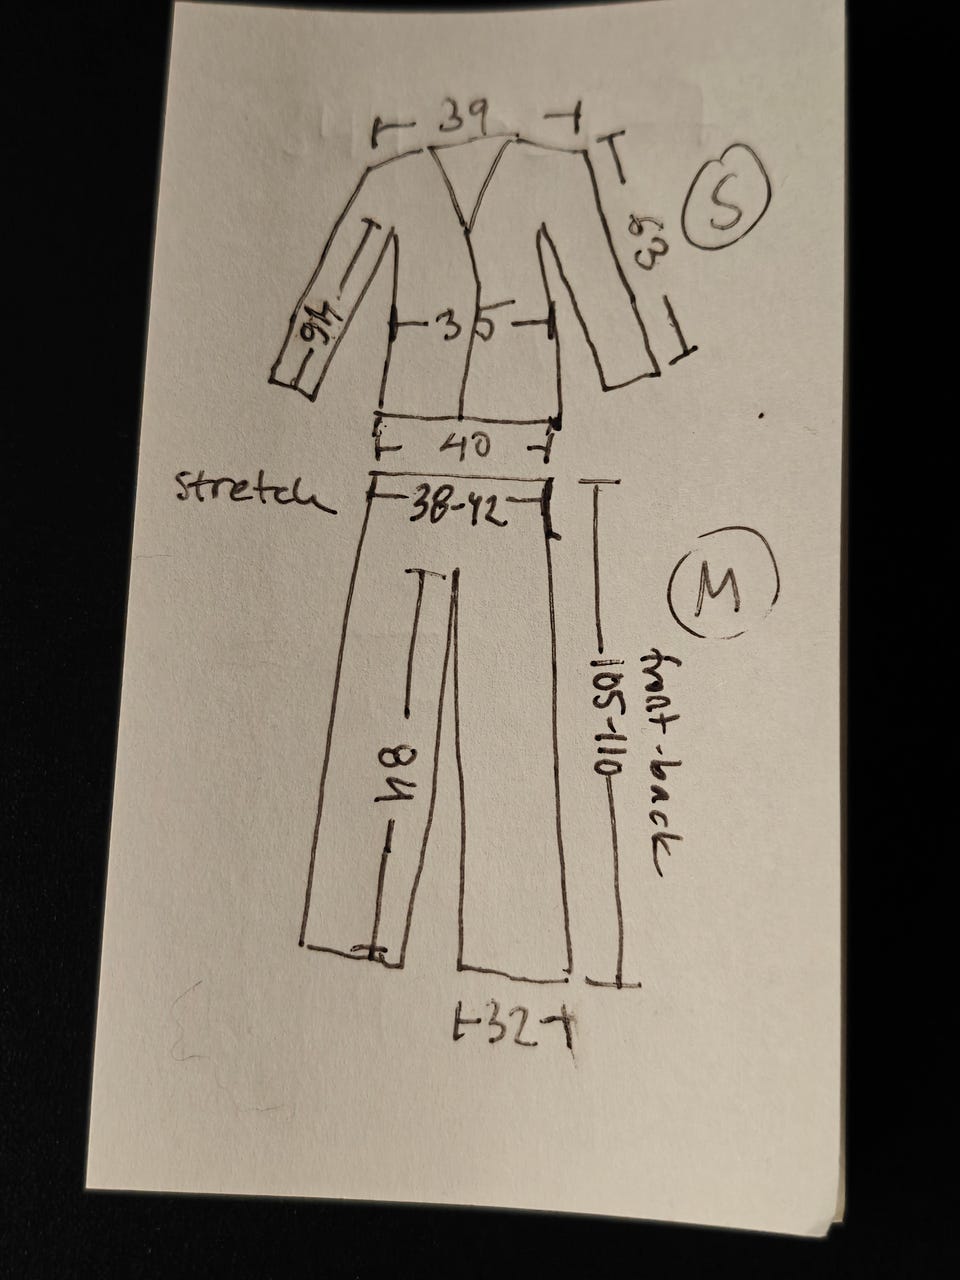 39
S
63
46
35
40
stretch
38-42
M
105-110
front-back
84
32